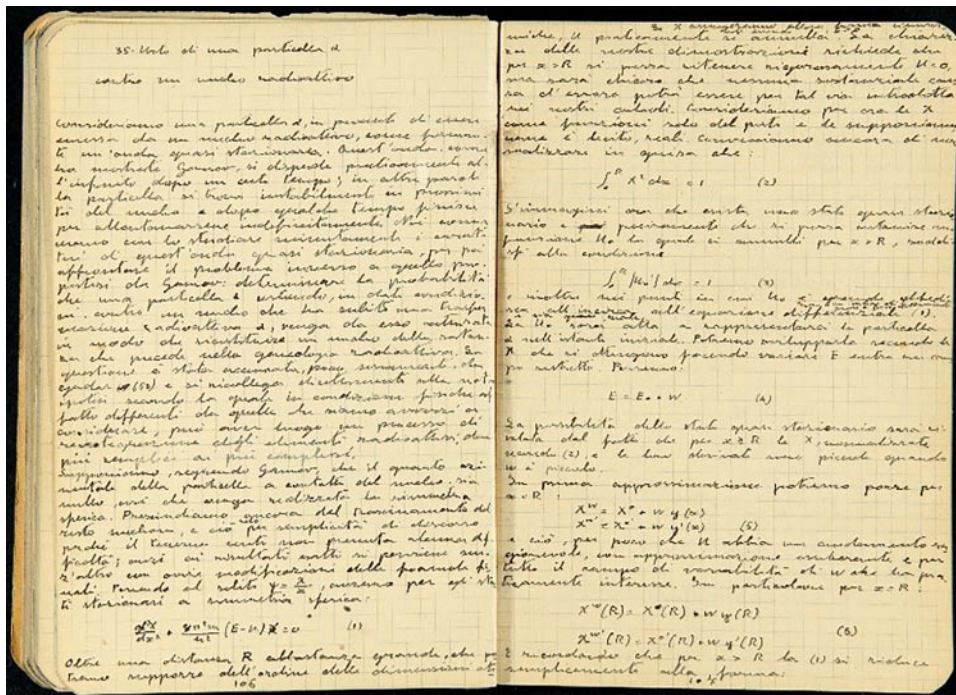 35. Urto di una particella α
contro un nucleo radioattivo
Consideriamo una particella α, in procinto di essere
emessa da un nucleo radioattivo, come formante
un'onda quasi stazionaria. Quest'onda, come
ha mostrato Gamow, si disperde praticamente al-
l'infinito dopo un certo tempo; in altre parole
la particella si trova instabilmente in prossimi
tà del nucleo e dopo qualche tempo finisce
per allontanarsene indefinitamente. Noi comin
ceremo con lo studiare minutamente i caratte
ri di quest'onda quasi stazionaria, per poi
affrontare il problema inverso a quello pro
postosi da Gamow: determinare la probabilità
che una particella α urtando, in date condizio
ni, contro un nucleo che ha subito una trasfor
mazione radioattiva α, venga da esso catturata
in modo da ricostituire un nucleo della sostan
za che precede nella genealogia radioattiva. La
questione è stata accennata, poco, da
e si ricollega direttamente alla nostra
ipotesi secondo la quale in condizioni fisiche af
fatto differenti da quelle che siamo avvezzi a
considerare, può aver luogo un processo di
reintegrazione degli elementi radioattivi, dai
più semplici ai più complessi.
Supponiamo, seguendo Gamow, che il quanto azi
mutale della particella a contatto del nucleo, sia
nullo, così che venga realizzata la simmetria
sferica. Prescindiamo ancora dal trascinamento del
resto nucleare, e ciò per semplicità di discorso
perché il tenerne conto non presenta alcuna dif
ficoltà; anzi ai risultati esatti si perviene sen
z'altro con ovvie modificazioni delle formule fi
nali. Ponendo al solito ψ = χ/x, avremo per gli sta
ti stazionari a simmetria sferica:
d²χ/dx² + 8π²m/h² (E-U) χ = 0 (1)
Oltre una distanza R abbastanza grande, che po
tremo supporre dell'ordine delle dimensioni ato
106
miche, U praticamente si annulla. La chiarez
za delle nostre dimostrazioni richiede che
per x>R si possa ritenere rigorosamente U=0,
ma sarà chiaro che nessuna sostanziale cau
sa d'errore potrà essere per tal via introdotta
nei nostri calcoli. Consideriamo per ora le χ
come funzioni solo del posto e le supponiamo
come è lecito, reali. Conveniamo ancora di nor
malizzare in guisa che:
∫₀ᴿ χ² dx = 1 (2)
S'immagini ora che esista uno stato quasi stazio
nario e precisamente che si possa costruire una
funzione u₀ la quale si annulli per x>R, soddi
sfi alla condizione
∫₀ᴿ |u₀²| dx = 1 (3)
e inoltre nei punti in cui u₀ obbedi
sca all'equazione differenziale (1).
La u₀ sarà atta a rappresentarci la particella
α nell'istante iniziale. Potremo svilupparla secondo le
χ che si ottengono facendo variare E entro un cam
po ristretto. Poniamo:
E = E₀ + W (4)
La possibilità dello stato quasi stazionario sarà ri
velata dal fatto che per x≥R le χ, normalizzate
secondo (2), e le loro derivate sono piccole quando
W è piccolo.
In prima approssimazione potremo porre per
x=R:
χʷ = χ° + W y(x)
χʷ' = χ°' + W y'(x) (5)
e ciò, per poco che U abbia un andamento ra
gionevole, con approssimazione esuberante e per
tutto il campo di variabilità di W che ha pra
ticamente interesse. In particolare per x=R:
χʷ(R) = χ°(R) + W y(R)
χʷ'(R) = χ°'(R) + W y'(R) (6)
E ricordando che per x>R la (1) si riduce
semplicemente alla forma: